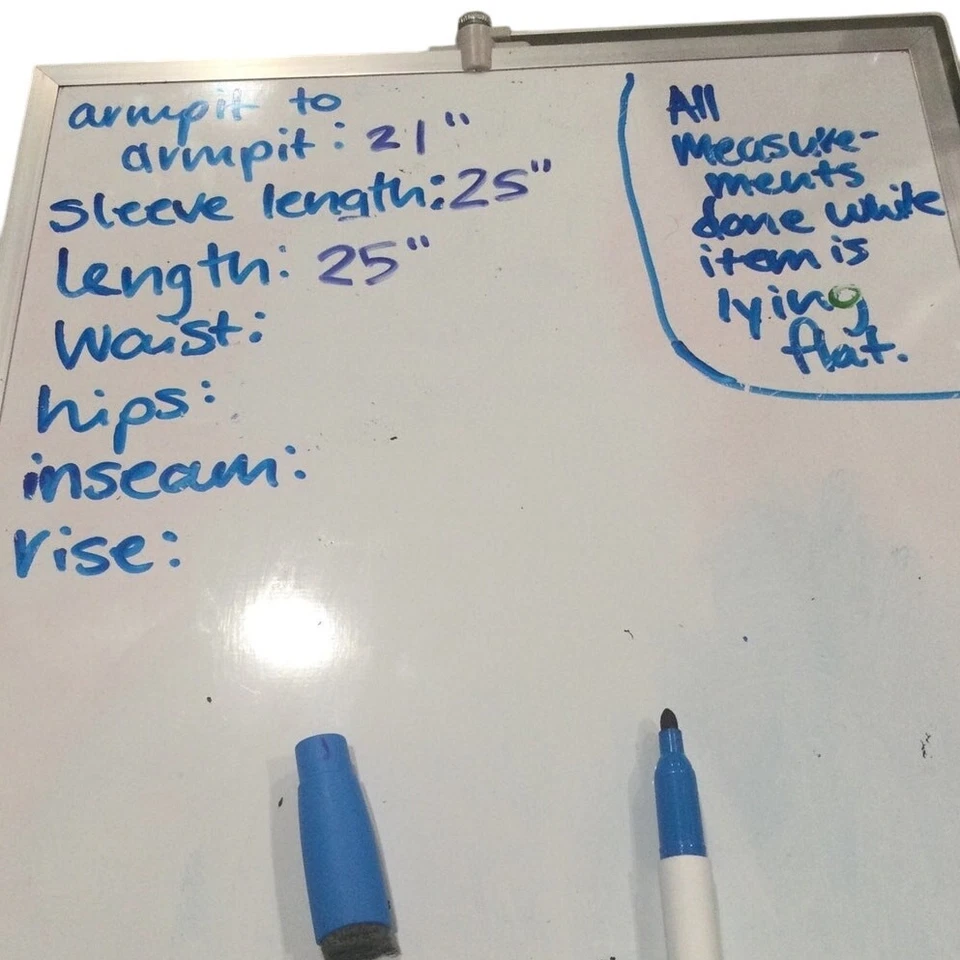 armpit to
armpit: 21"
sleeve length: 25"
length: 25"
waist:
hips:
inseam:
rise:
All
measure-
ments
done while
item is
lying
flat.